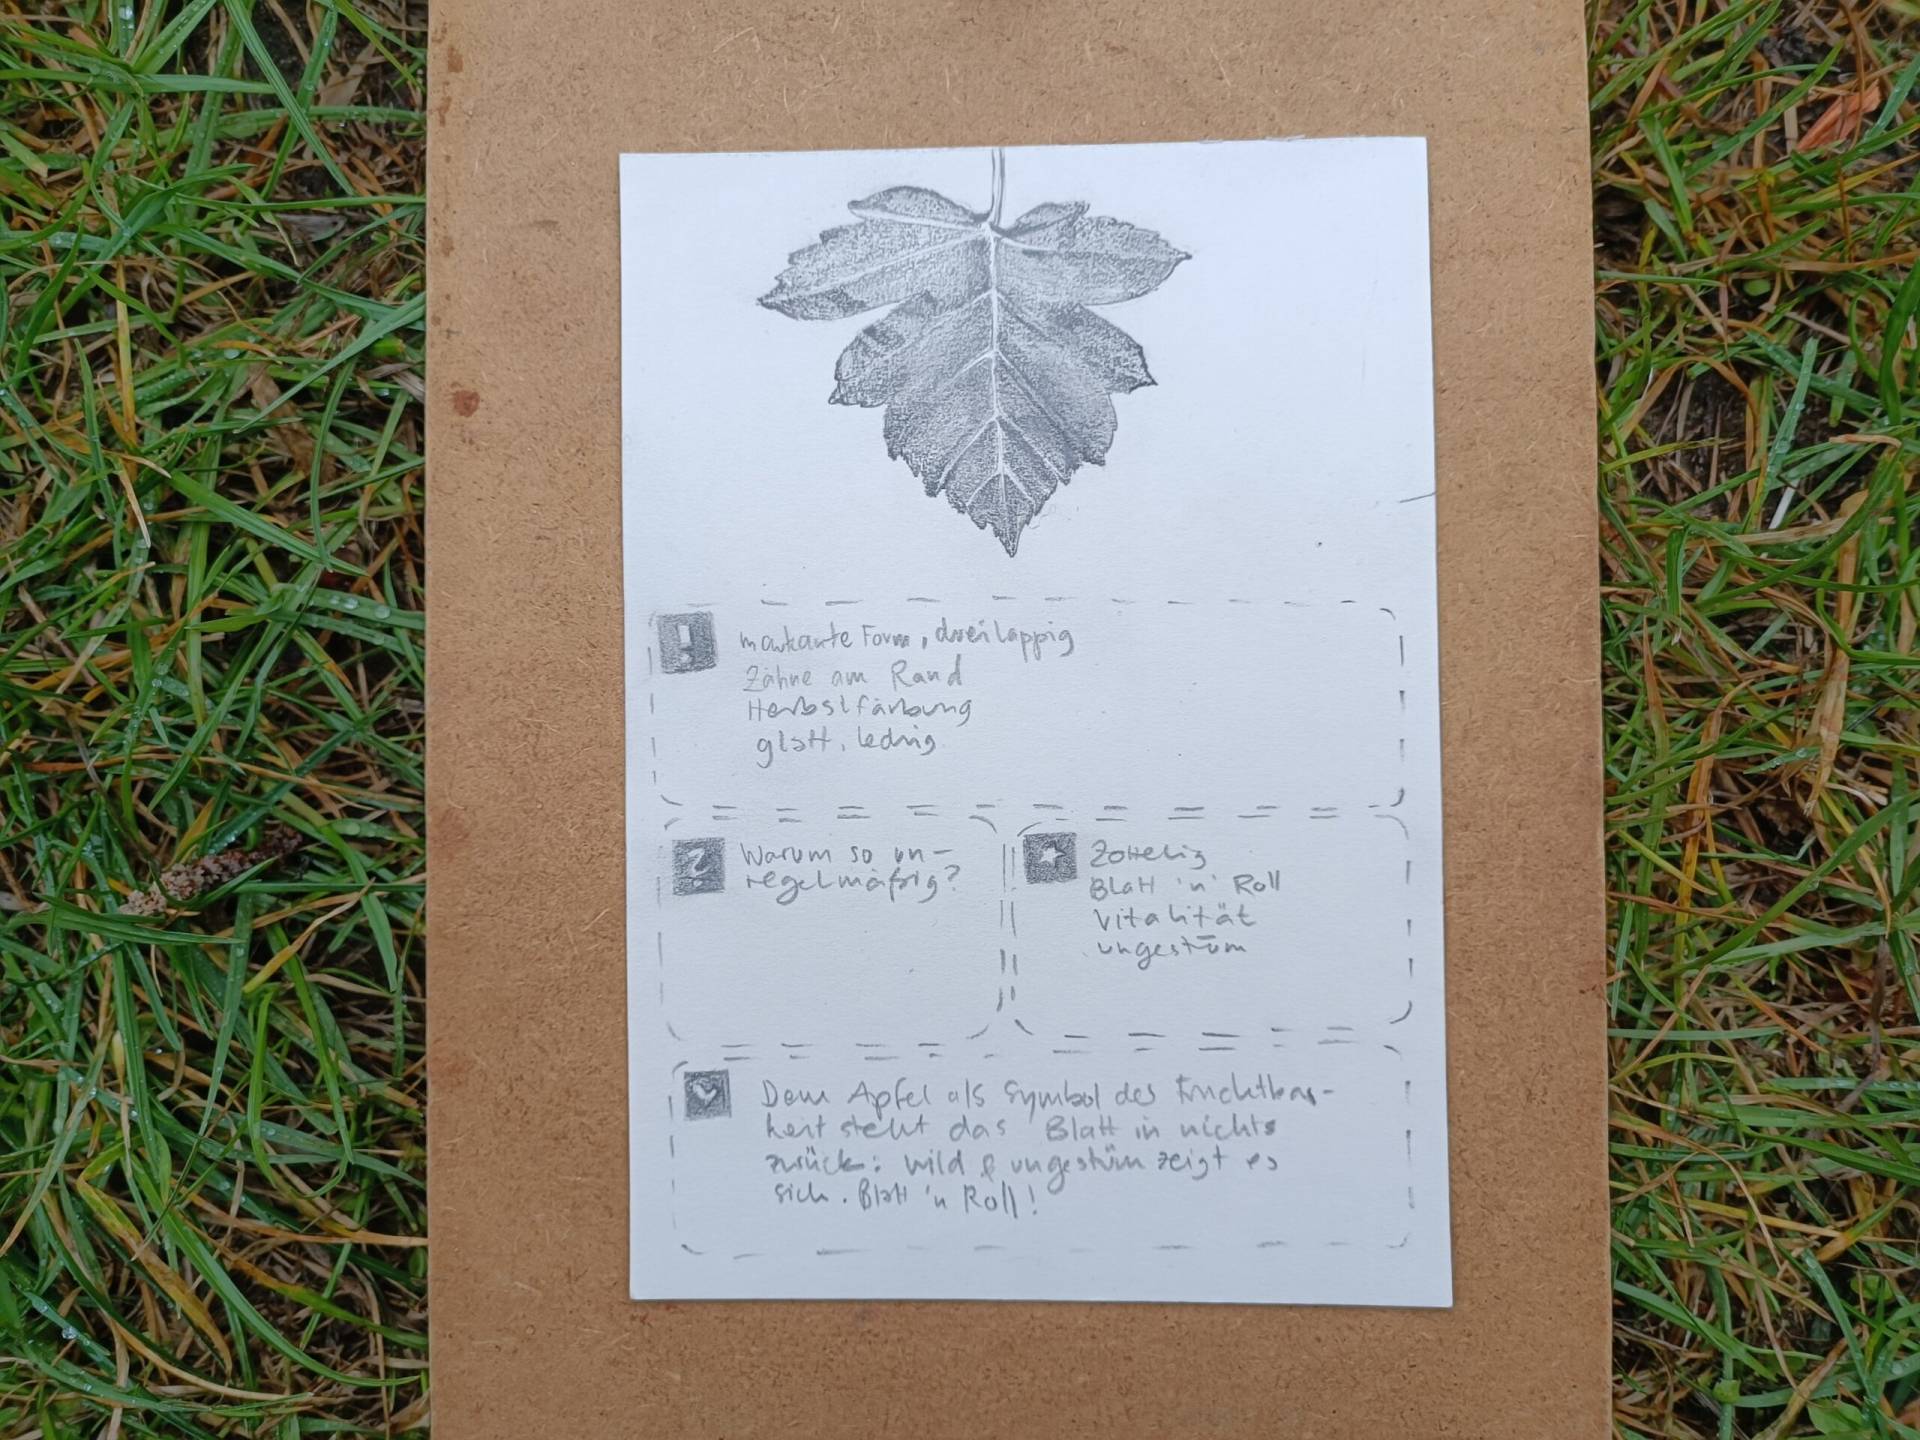 !
markante Form, dreilappig
Zähne am Rand
Herbstfärbung
glatt, ledrig
?
Warum so un-
regelmäßig?
Zottelig
Blatt 'n' Roll
Vitalität
ungestüm
Dem Apfel als Symbol der Fruchtbar-
keit steht das Blatt in nichts
zurück: wild & ungestüm zeigt es
sich. Blatt 'n Roll!